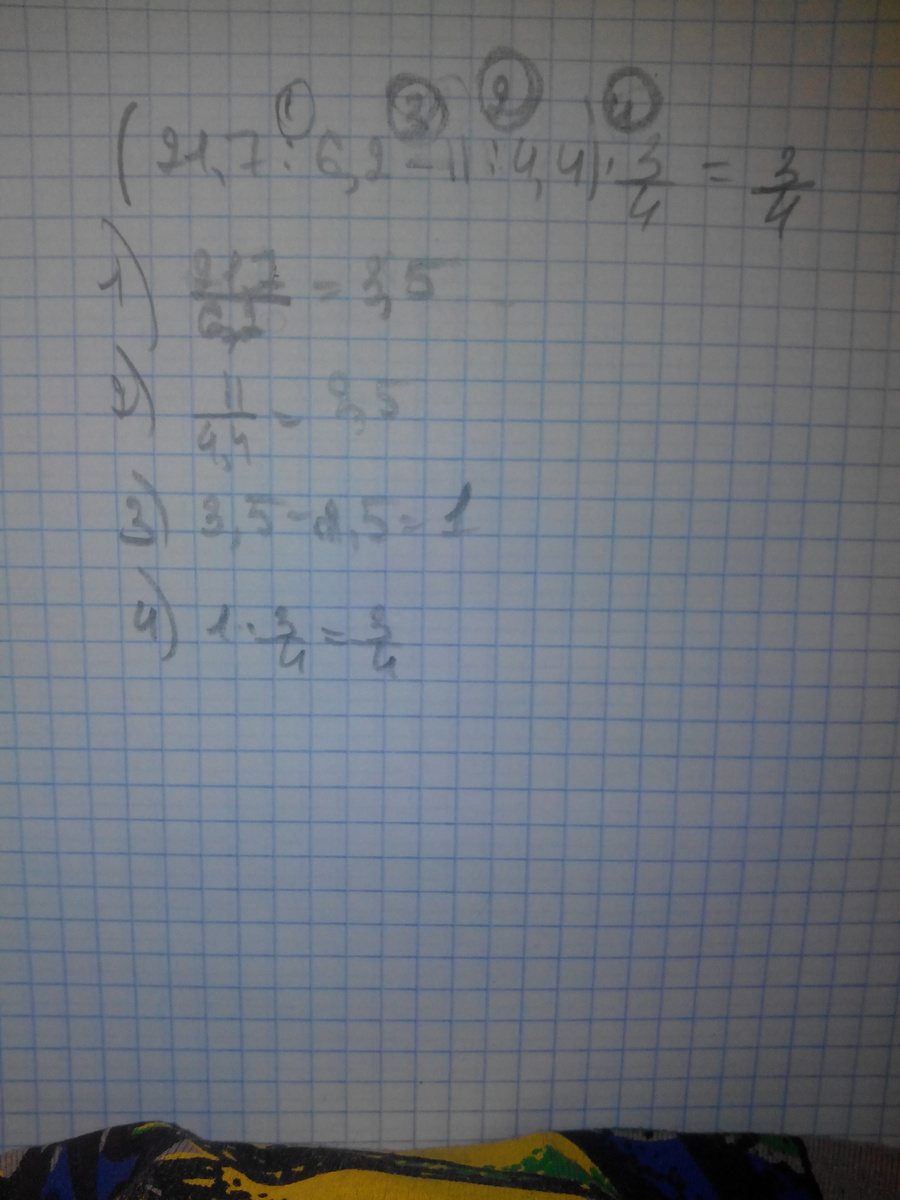 ① ③ ② ④
(21,7 : 6,2 - 11 : 4,4) · 3/4 = 3/4
1) 21,7/6,2 = 3,5
2) 11/4,4 = 2,5
3) 3,5 - 2,5 = 1
4) 1 · 3/4 = 3/4